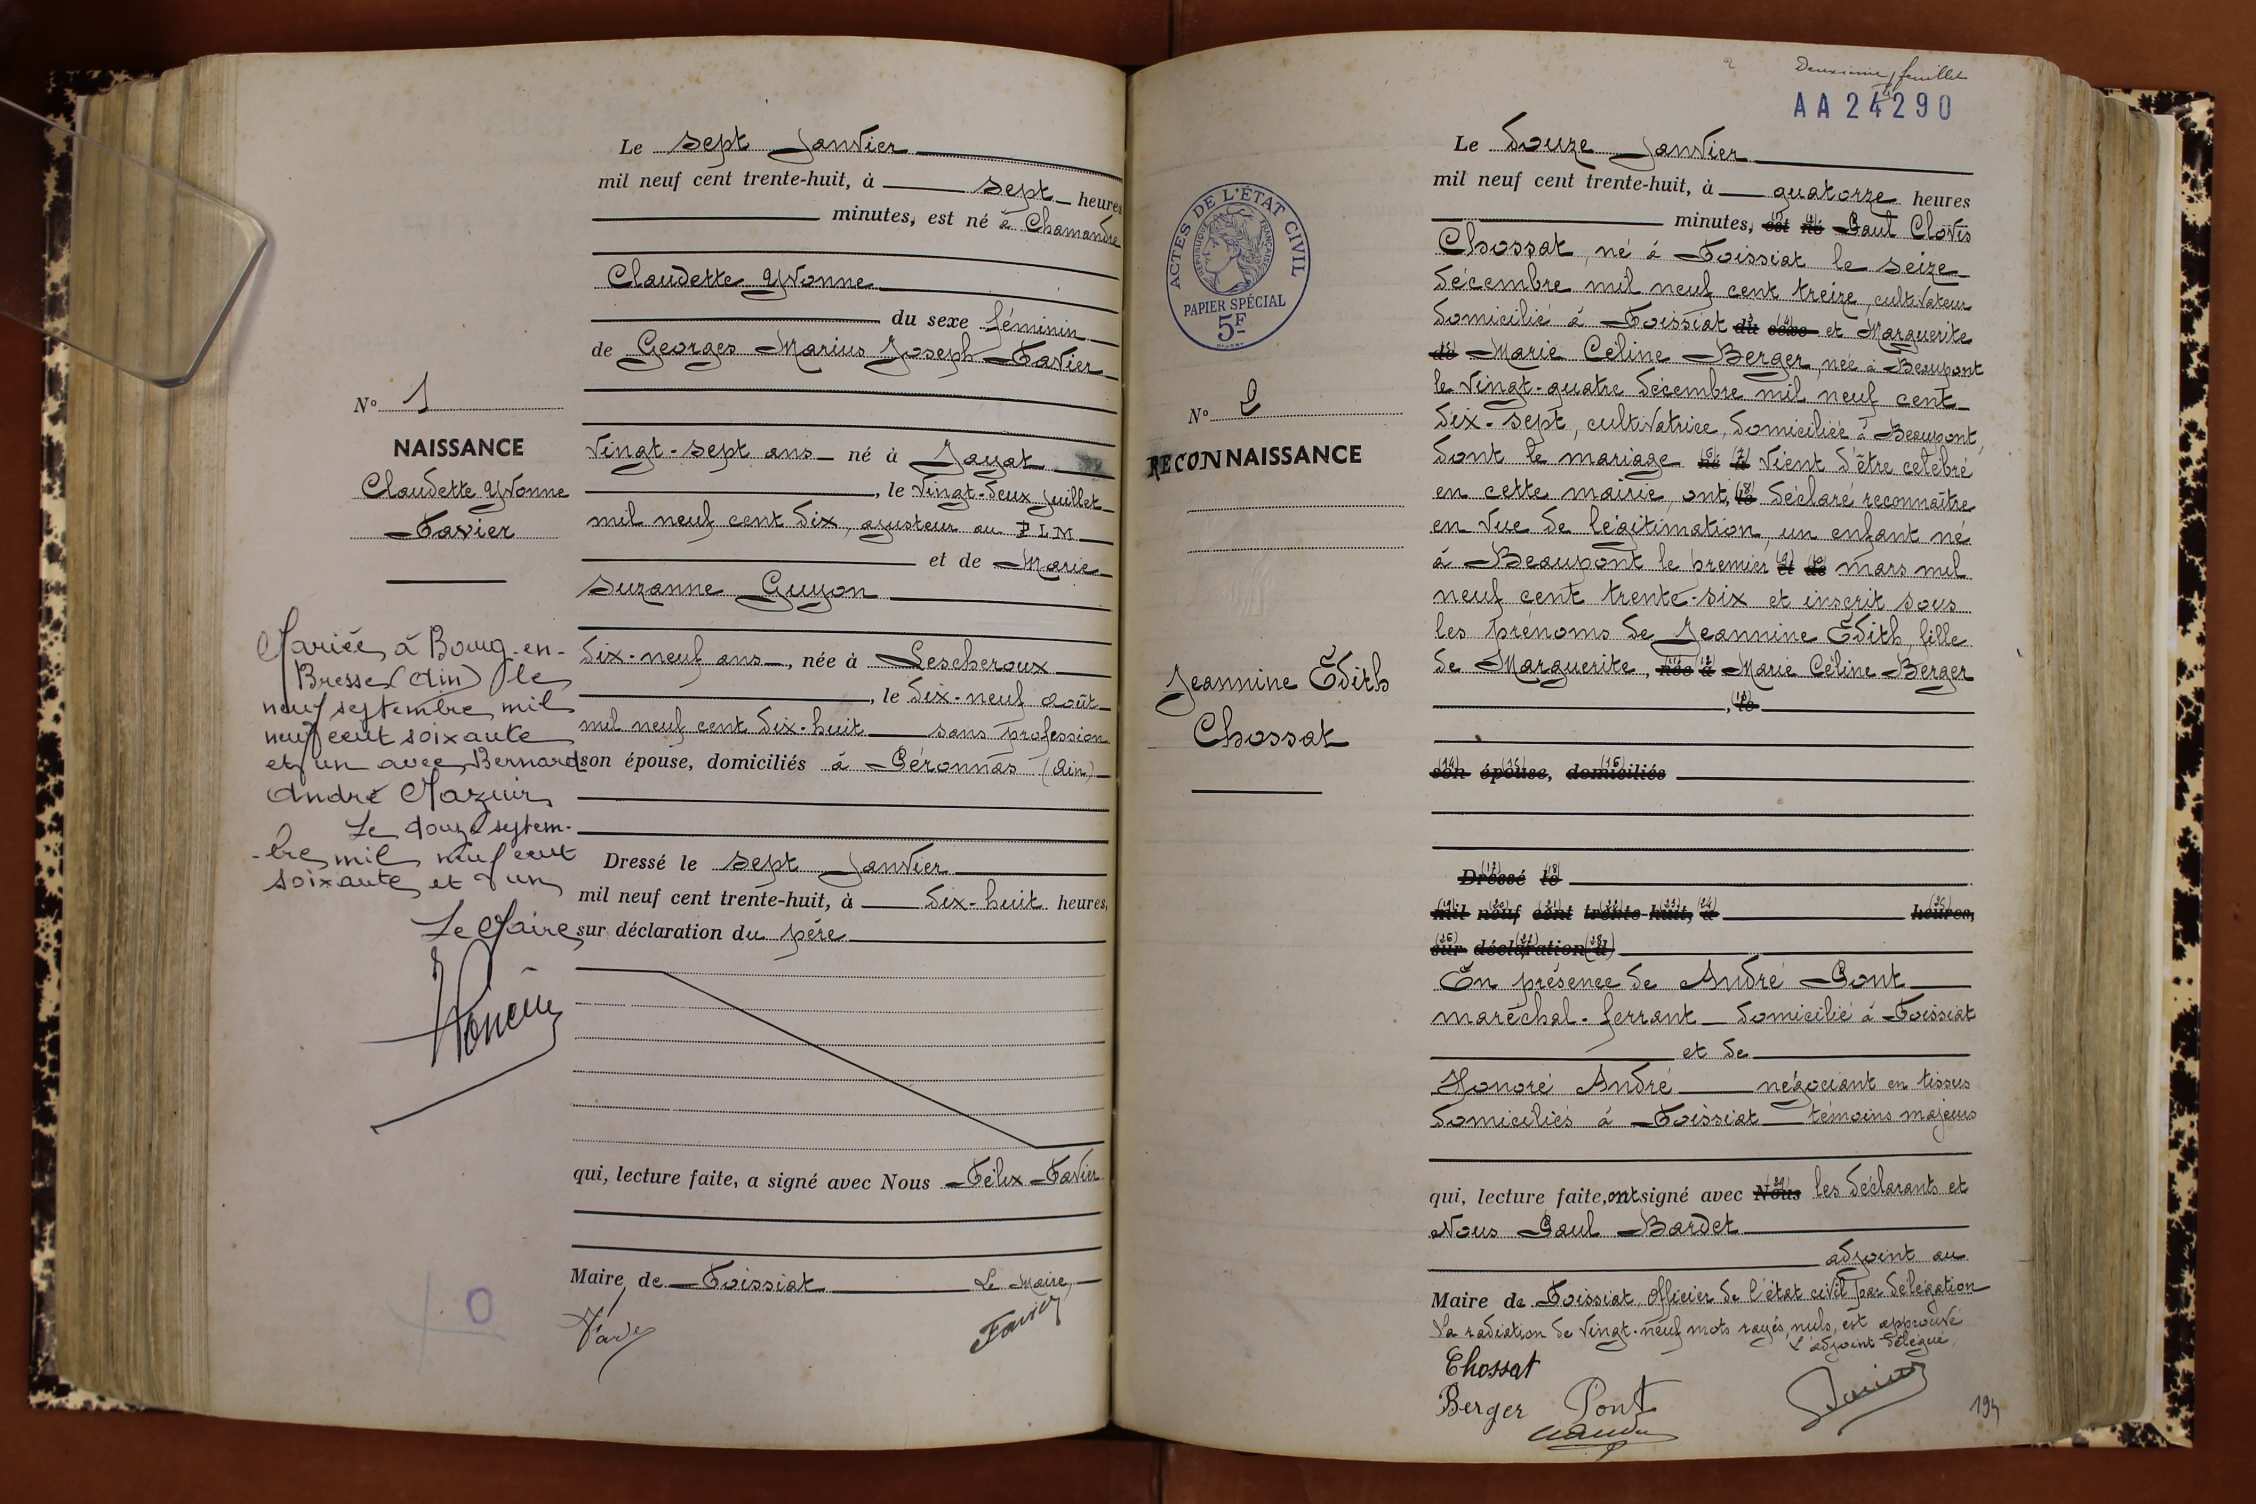 Le sept Janvier
mil neuf cent trente-huit, à sept heures
minutes, est né à Chamandre
Claudette Yvonne
du sexe féminin
de Georges Marius Joseph Favier
N° 1
NAISSANCE
Claudette Yvonne
Favier
vingt-sept ans né à Jayat
, le vingt-deux juillet
mil neuf cent dix, ajusteur au PLM
et de Marie
Suzanne Guyon
dix-neuf ans, née à Lescheroux
, le dix-neuf août
mil neuf cent dix-huit sans profession
son épouse, domiciliés à Péronnas (Ain)
Dressé le sept Janvier
mil neuf cent trente-huit, à dix-huit heures,
sur déclaration du père
qui, lecture faite, a signé avec Nous Félix Favier
Maire de Foissiat Le Maire,
Favier
Mariée à Bourg-en-
Bresse (Ain) le
neuf septembre mil
neuf cent soixante
et un avec Bernard
André Mazuir
Le douze septem-
-bre mil neuf cent
soixante et un
Le Maire
Deuxième feuillet
AA 24290
ACTES DE L'ÉTAT CIVIL
RÉPUBLIQUE FRANÇAISE
PAPIER SPÉCIAL
5F
Le douze Janvier
mil neuf cent trente-huit, à quatorze heures
minutes, (1) est (2) né Paul Clovis
Chossat, né à Foissiat le seize
décembre mil neuf cent treize, cultivateur
domicilié à Foissiat (3) du (4) sexe et Marguerite
(5) de Marie Céline Berger, née à Beaupont
le vingt-quatre décembre mil neuf cent
dix-sept, cultivatrice, domiciliée à Beaupont,
dont le mariage (6) né (7) à vient d'être célébré
en cette mairie, ont, (8) le déclaré reconnaître
en vue de légitimation, un enfant né
à Beaupont le premier (9) et (10) de mars mil
neuf cent trente-six et inscrit sous
les prénoms de Jeannine Edith, fille
de Marguerite, (11) née (12) à Marie Céline Berger
, (13) le
(14) son (15) épouse, (16) domiciliés
(17) Dressé (18) le
(19) mil (20) neuf (21) cent (22) trente-(23) huit, (24) à (25) heures,
(26) sur (27) déclaration (28) d
En présence de André Pont
maréchal-ferrant domicilié à Foissiat
et de
Honoré André négociant en tissus
domiciliés à Foissiat témoins majeurs
qui, lecture faite, ont signé avec (29) Nous les déclarants et
Nous Paul Bardet
adjoint au
Maire de Foissiat, Officier de l'état civil par délégation
La radiation de vingt-neuf mots rayés nuls, est approuvé
L'adjoint délégué,
N° 2
RECONNAISSANCE
Jeannine Edith
Chossat
Chossat
Berger Pont
194